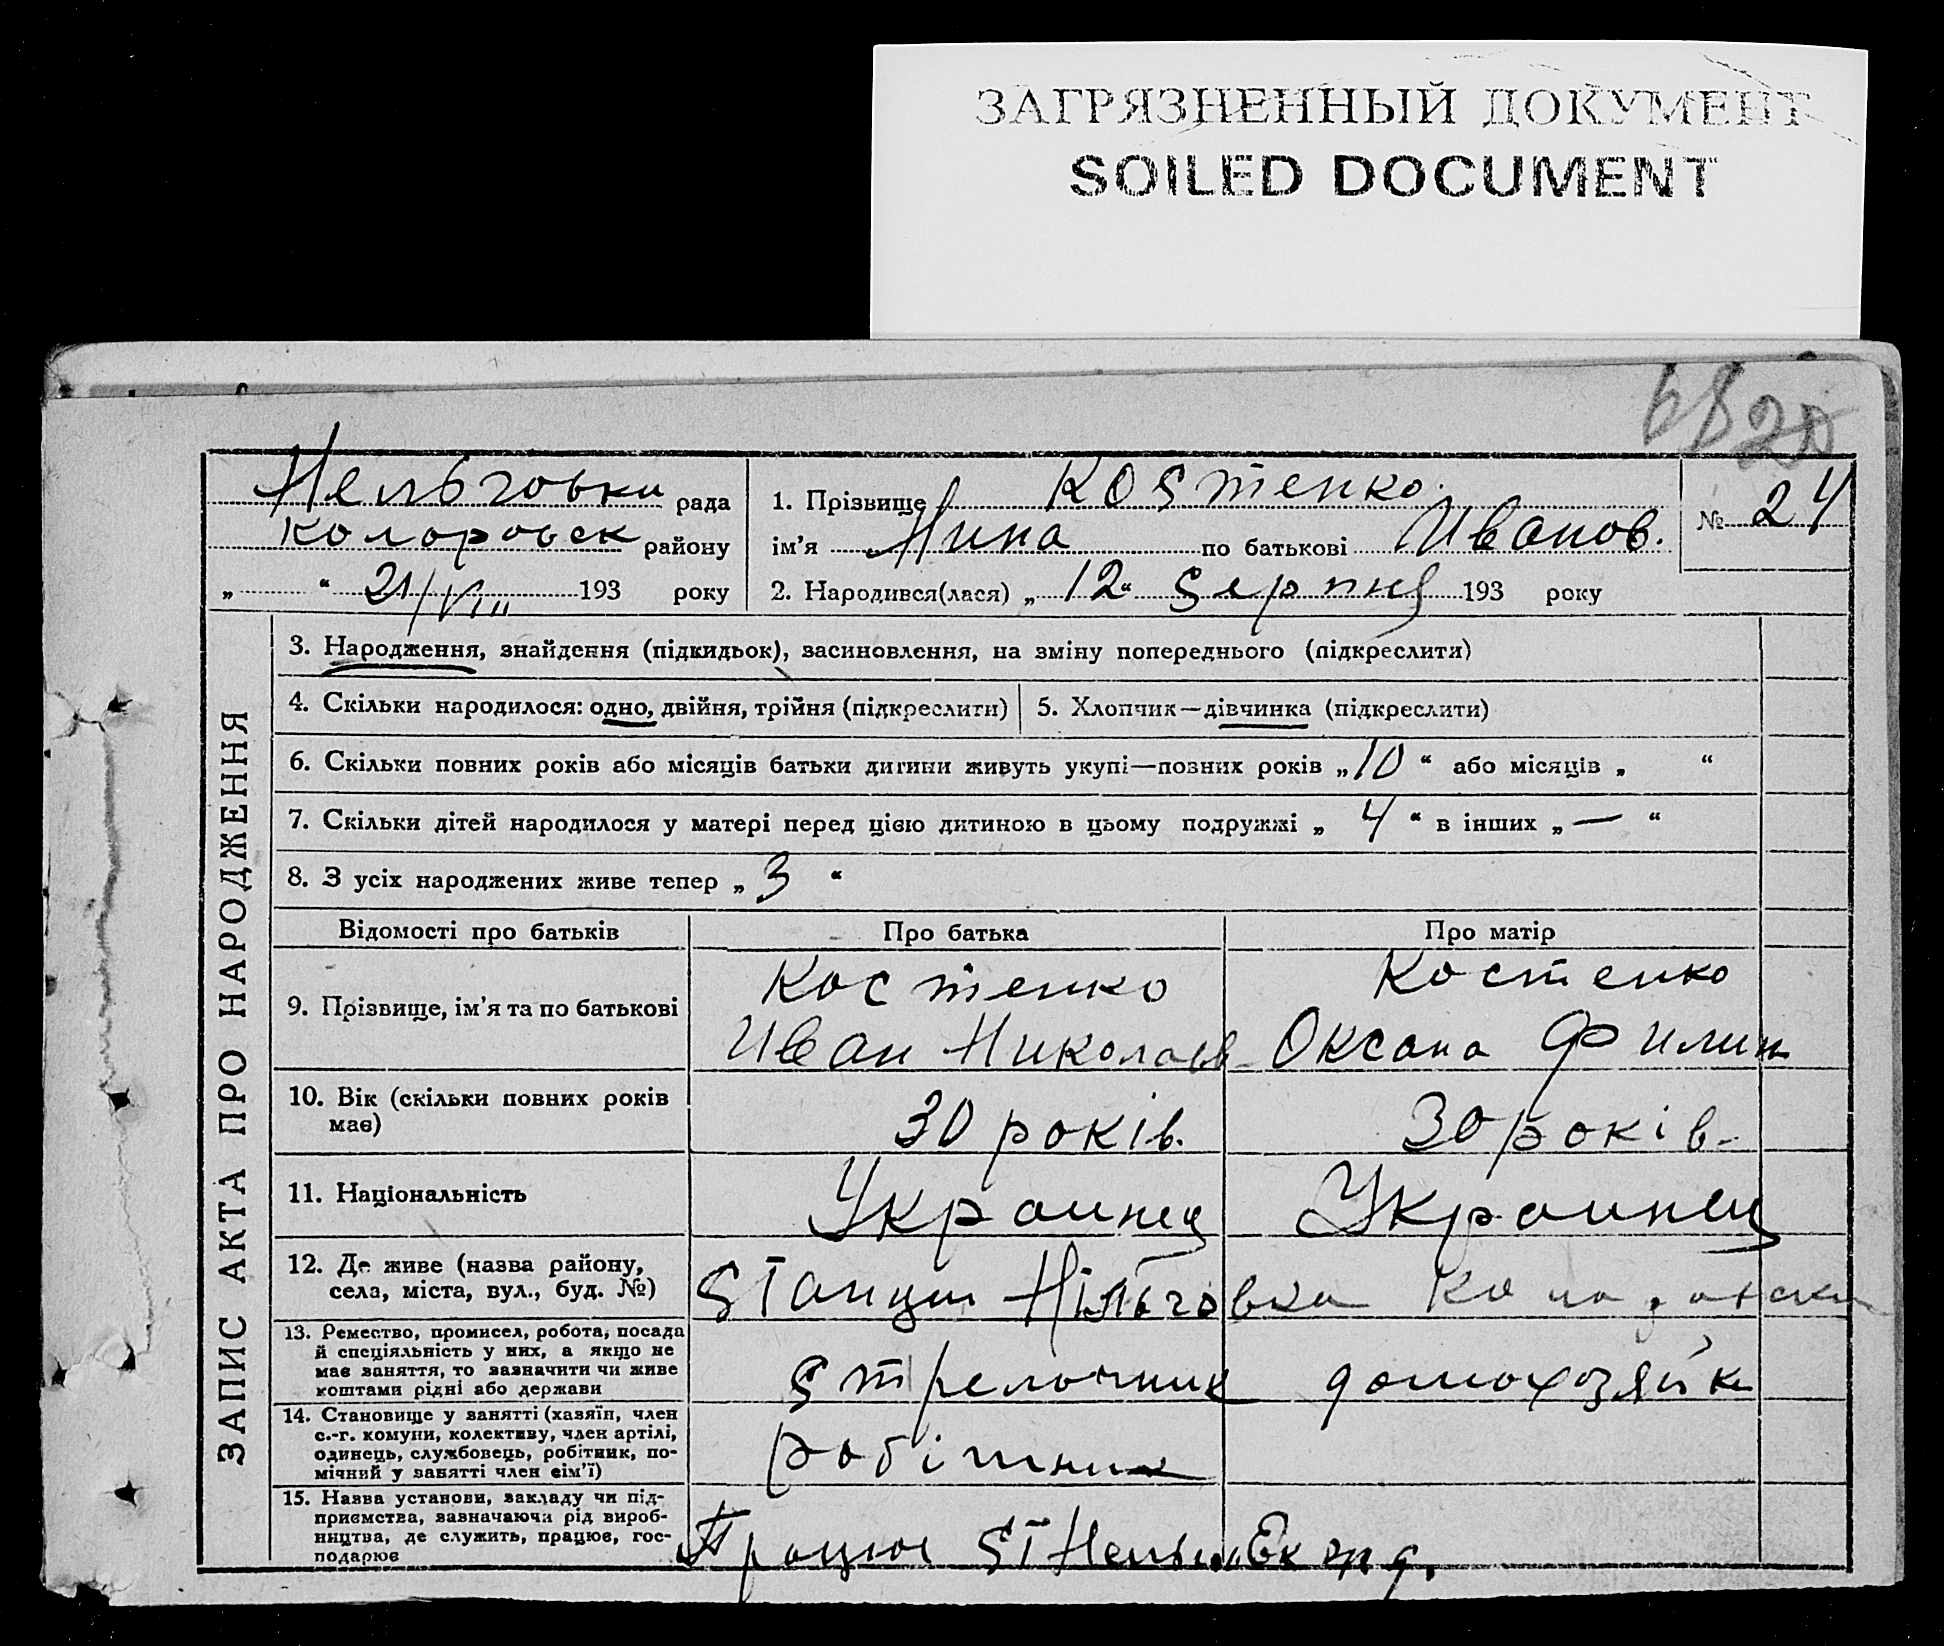 ЗАГРЯЗНЕННЫЙ ДОКУМЕНТ
SOILED DOCUMENT
68 20
Нельговки рада
Коларовск району
„ “ 21/VIII 193 року
1. Прізвище Костенко.
ім’я Нина по батькові Иванов.
№ 24
2. Народився(лася) „ 12 “ Серпня 193 року
ЗАПИС АКТА ПРО НАРОДЖЕННЯ
3. Народження, знайдення (підкидьок), засиновлення, на зміну попереднього (підкреслити)
4. Скільки народилося: одно, двійня, трійня (підкреслити)
5. Хлопчик—дівчинка (підкреслити)
6. Скільки повних років або місяців батьки дитини живуть укупі—повних років „ 10 “ або місяців „ “
7. Скільки дітей народилося у матері перед цією дитиною в цьому подружжі „ 4 “ в інших „ — “
8. З усіх народжених живе тепер „ 3 “
Відомості про батьків Про батька Про матір
9. Прізвище, ім’я та по батькові
Костенко
Иван Николаев
Костенко
Оксана Филип
10. Вік (скільки повних років
має)
30 років.
30 років.
11. Національність
Украинец
Украинец
12. Де живе (назва району,
села, міста, вул., буд. №)
Станции Нільговка
13. Ремество, промисел, робота, посада
й спеціяльність у них, а якщо не
має заняття, то зазначити чи живе
коштами рідні або держави
Стрелочник
домохозяйк
14. Становище у занятті (хазяїн, член
с.-г. комуни, колективу, член артілі,
одинець, службовець, робітник, по-
мічний у занятті член сім’ї)
робітник
15. Назва установи, закладу чи під-
приємства, зазначаючи рід вироб-
ництва, де служить, працює, гос-
подарює
Працює Ст